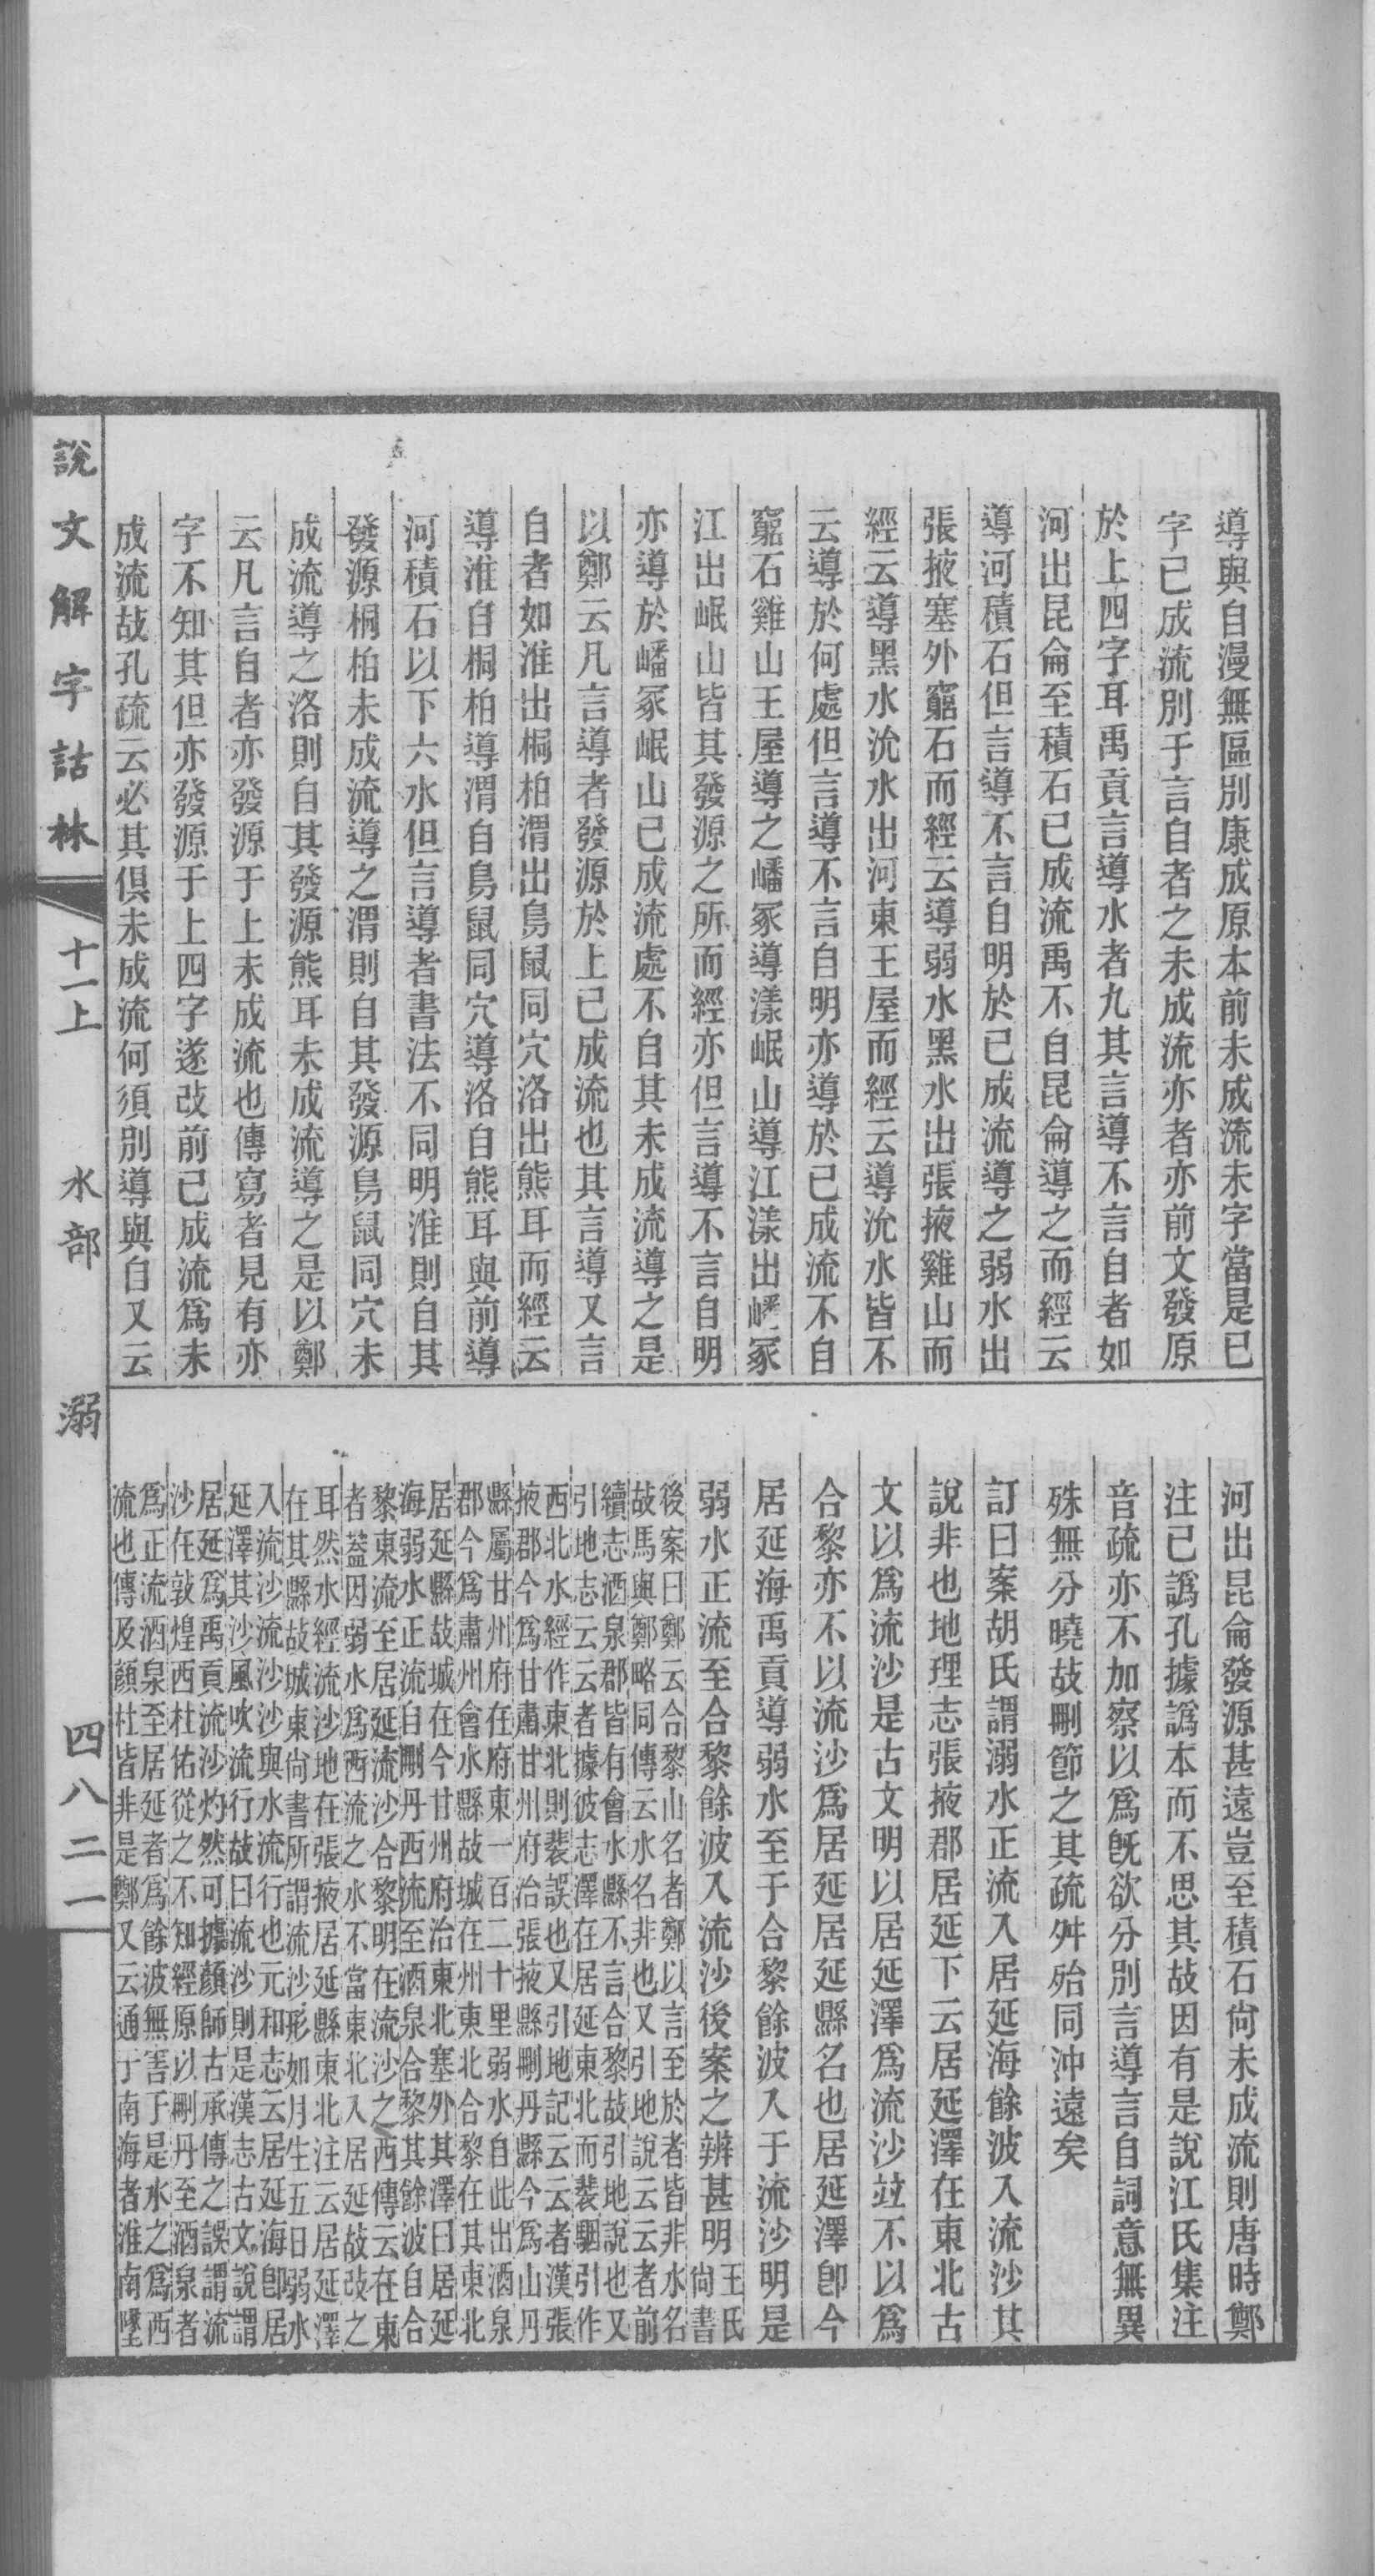 導與自漫無區別康成原本前未成流未字當是已
字已成流別于言自者之未成流亦者亦前文發原
於上四字耳禹貢言導水者九其言導不言自者如
河出昆侖至積石已成流禹不自昆侖導之而經云
導河積石但言導不言自明於已成流導之弱水出
張掖塞外窮石而經云導弱水黑水出張掖雞山而
經云導黑水沇水出河東王屋而經云導沇水皆不
云導於何處但言導不言自明亦導於已成流不自
窮石雞山王屋導之嶓冢導漾岷山導江漾出嶓冢
江出岷山皆其發源之所而經亦但言導不言自明
亦導於嶓冢岷山已成流處不自其未成流導之是
以鄭云凡言導者發源於上已成流也其言導又言
自者如淮出桐柏渭出鳥鼠同穴洛出熊耳而經云
導淮自桐柏導渭自鳥鼠同穴導洛自熊耳與前導
河積石以下六水但言導者書法不同明淮則自其
發源桐柏未成流導之渭則自其發源鳥鼠同穴未
成流導之洛則自其發源熊耳未成流導之是以鄭
云凡言自者亦發源于上未成流也傳寫者見有亦
字不知其但亦發源于上四字遂改前已成流爲未
成流故孔疏云必其俱未成流何須別導與自又云
河出昆侖發源甚遠豈至積石尙未成流則唐時鄭
注已譌孔據譌本而不思其故因有是說江氏集注
音疏亦不加察以爲旣欲分別言導言自詞意無異
殊無分曉故刪節之其疏舛殆同沖遠矣
訂曰案胡氏謂溺水正流入居延海餘波入流沙其
說非也地理志張掖郡居延下云居延澤在東北古
文以爲流沙是古文明以居延澤爲流沙竝不以爲
合黎亦不以流沙爲居延居延縣名也居延澤卽今
居延海禹貢導弱水至于合黎餘波入于流沙明是
弱水正流至合黎餘波入流沙後案之辨甚明王氏尙書
後案曰鄭云合黎山名者鄭以言至於者皆非水名
故馬與鄭略同傳云水名非也又引地說云云者前
續志酒泉郡皆有會水縣不言合黎故引地說也又
引地志云云者據彼志澤在居延東北而裴駰引作
西北水經作東北則裴誤也又引地記云云者漢張
掖郡今爲甘肅甘州府治張掖縣刪丹縣今爲山丹
縣屬甘州府在府東一百二十里弱水自此出酒泉
郡今爲肅州會水縣故城在州東北合黎在其東北
居延縣故城在今甘州府治東北塞外其澤曰居延
海弱水正流自刪丹西流至酒泉合黎其餘波自合
黎東流至居延流沙合黎明在流沙之西傳云在東
者蓋因弱水爲西流之水不當東北入居延故改之
耳然水經流沙地在張掖居延縣東北注云居延澤
在其縣故城東尙書所謂流沙形如月生五日弱水
入流沙流沙沙與水流行也元和志云居延海卽居
延澤其沙風吹流行故曰流沙則是漢志古文說謂
居延爲禹貢流沙灼然可據顏師古承傳之誤謂流
沙在敦煌西杜佑從之不知經原以刪丹至酒泉者
爲正流酒泉至居延者爲餘波無害于是水之爲西
流也傳及顏杜皆非是鄭又云通于南海者淮南墬
說文解字詁林 十一上 水部 溺 四八二一